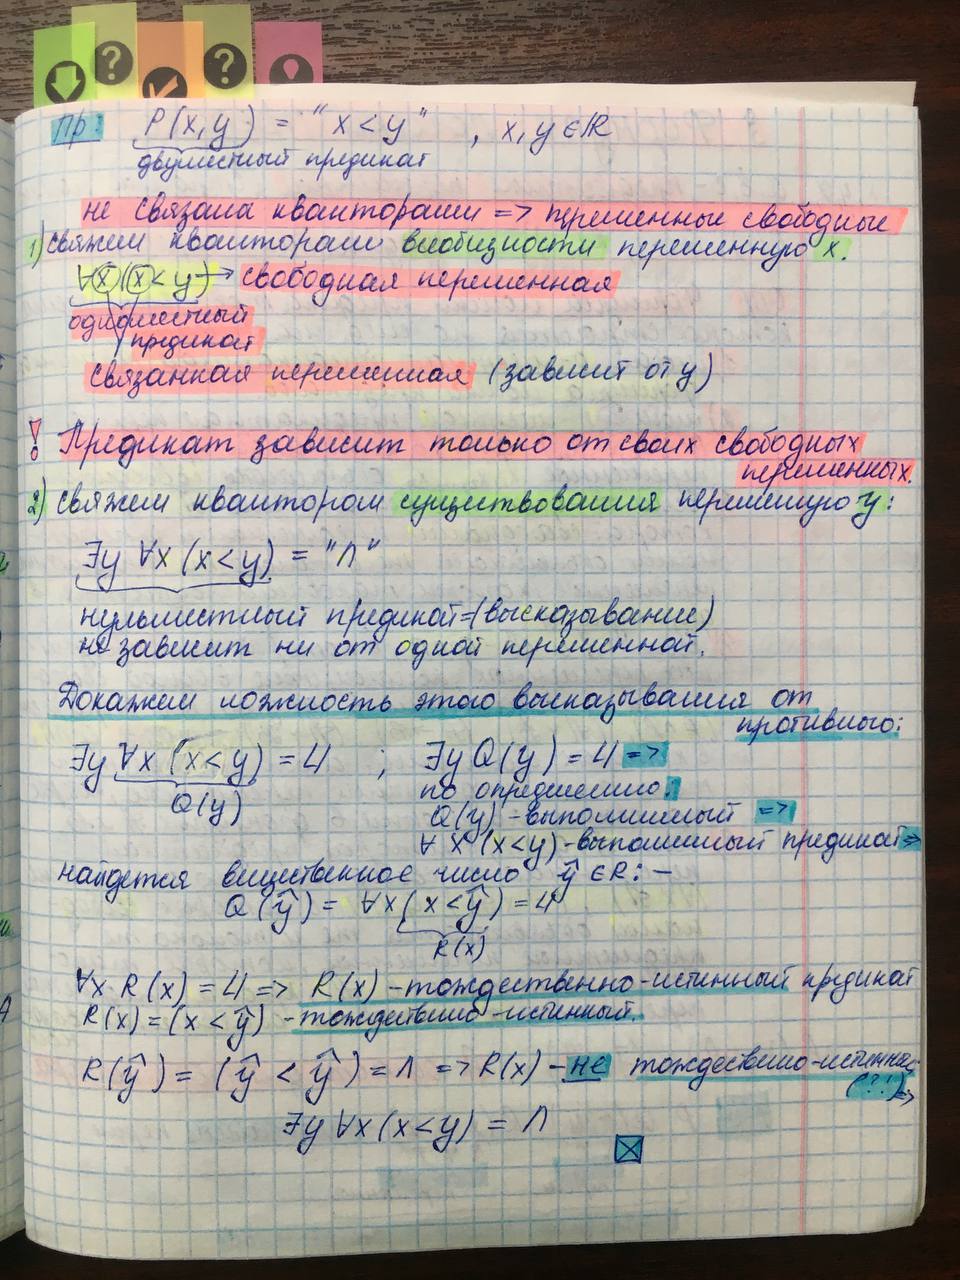 Пр: P(x,y) = "x<y" , x,y ∈ ℝ
двуместный предикат
не связана кванторами => переменные свободные
1) Свяжем кванторами всеобщности переменную x.
∀x (x<y) → свободная переменная
одноместный
предикат
связанная переменная (зависит от y)
! Предикат зависит только от своих свободных
переменных.
2) свяжем квантором существования переменную y:
∃y ∀x (x<y) = "Л"
нульместный предикат=(высказывание)
не зависит ни от одной переменной.
Докажем ложность этого высказывания от
противного:
∃y ∀x (x<y) = И ; ∃y Q(y) = И =>
Q(y)
по определению:
Q(y) - выполнимый =>
∀x (x<y) - выполнимый предикат =>
найдется вещественное число ŷ ∈ R: –
Q(ŷ) = ∀x (x<ŷ) = И
R(x)
∀x R(x) = И => R(x) - тождественно-истинный предикат
R(x) = (x<ŷ) - тождествено-истинный.
R(ŷ) = (ŷ < ŷ) = Л => R(x) - не тождествено-истинна;
(?!) =>
∃y ∀x (x<y) = Л